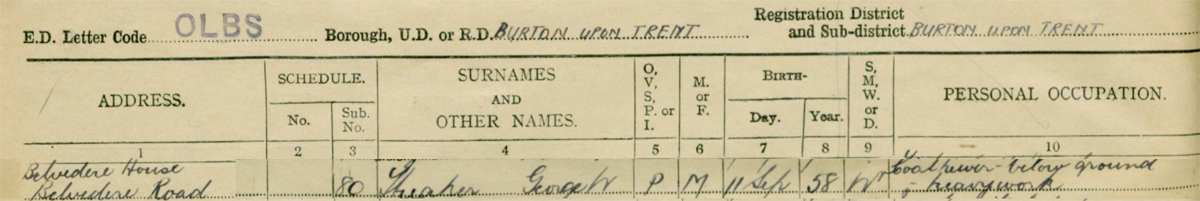 E.D. Letter Code OLBS Borough, U.D. or R.D. BURTON UPON TRENT Registration District and Sub-district BURTON UPON TRENT
ADDRESS. SCHEDULE. No. Sub. No. SURNAMES AND OTHER NAMES. O, V, S, P. or I. M. or F. BIRTH- Day. Year. S, M, W. or D. PERSONAL OCCUPATION.
1 2 3 4 5 6 7 8 9 10
Belvedere House
Belvedere Road 80 George W P M 11 Sep 58 W below ground
heavy work